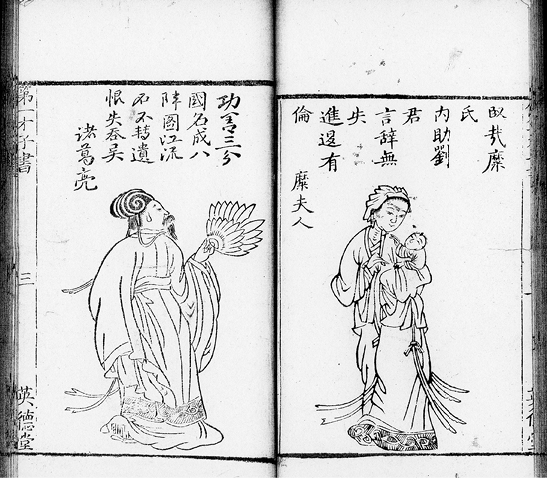 哉糜
氏
内助劉
君
言辭無
失
進退有
倫
糜夫人
功蓋三分
國名成八
陣圖江流
石不轉遺
恨失吞吳
諸葛亮
第一才子書
三
英德堂